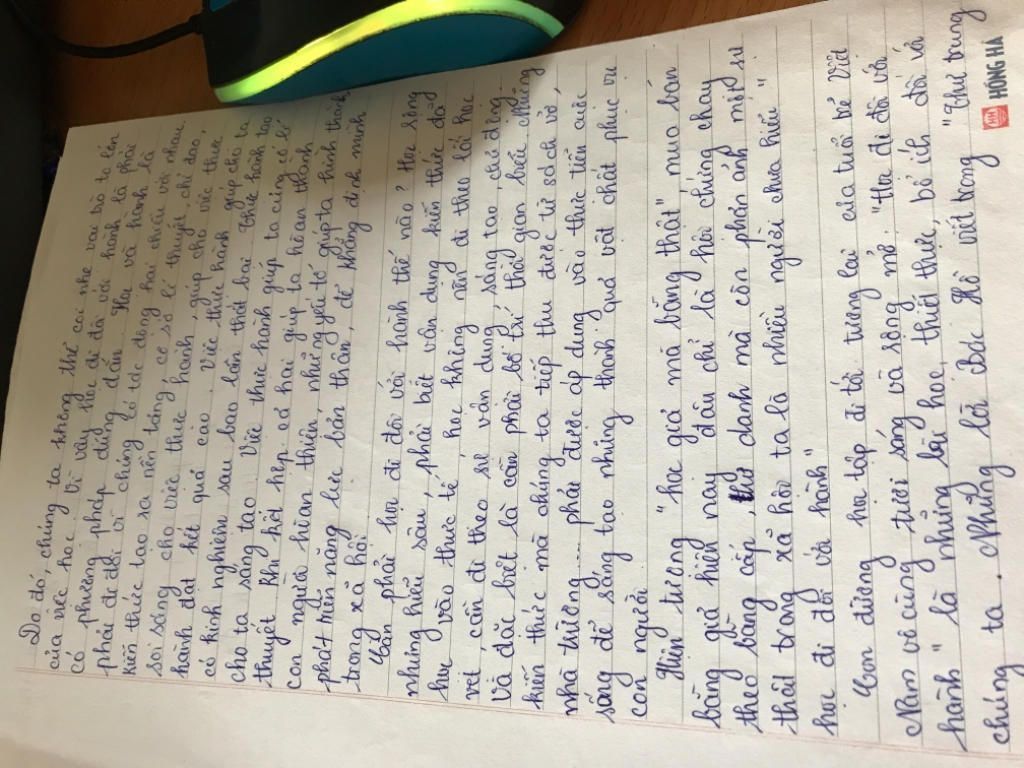 Do đó, chúng ta không thể coi nhẹ vai trò to lớn
của việc học. Vì vậy hãy học đi đôi với hành là phải
có phương pháp đúng đắn. Học và hành là
phải đi đôi vì chúng có tác động hai chiều với nhau.
kiến thức tạo ra nền tảng, cơ sở lí thuyết, chỉ đạo,
soi sáng cho việc thực hành, giúp cho việc thực
hành đạt kết quả cao. Việc thực hành giúp cho ta
có kinh nghiệm sau bao lần thất bại. Thực hành tạo
cho ta sáng tạo. Việc thực hành giúp ta củng cố lí
thuyết. Khi kết hợp cả hai giúp ta hoàn thành
con người hoàn thiện, những yếu tố giúp ta hình thành,
phát triển năng lực bản thân, để khẳng định mình
trong xã hội.
Cần phải học đi đôi với hành thế nào? Học rộng
nhưng hiểu sâu, phải biết vận dụng kiến thức đã
học vào thực tế, học không nên đi theo lối học
vẹt, cần đi theo sự vận dụng, sáng tạo, chủ động.
Và đặc biệt là cần phải bố trí thời gian biểu. Những
kiến thức mà chúng ta tiếp thu được từ sách vở,
nhà trường... phải được áp dụng vào thực tiễn cuộc
sống để sáng tạo những thành quả vật chất phục vụ
con người.
Hiện tượng "học giả mà bằng thật" mua bán
bằng giả hiện nay đâu chỉ là hội chứng chạy
theo bằng cấp, danh mà còn phản ánh một sự
thật trong xã hội ta là nhiều người chưa hiểu "
học đi đôi với hành"
Con đường học tập đi tới tương lai của tuổi trẻ Việt
Nam vô cùng tươi sáng và rộng mở. "Học đi đôi với
hành" là những bài học, thiết thực, bổ ích đối với
chúng ta. Những lời Bác Hồ viết trong "Thư trung
HỒNG HÀ